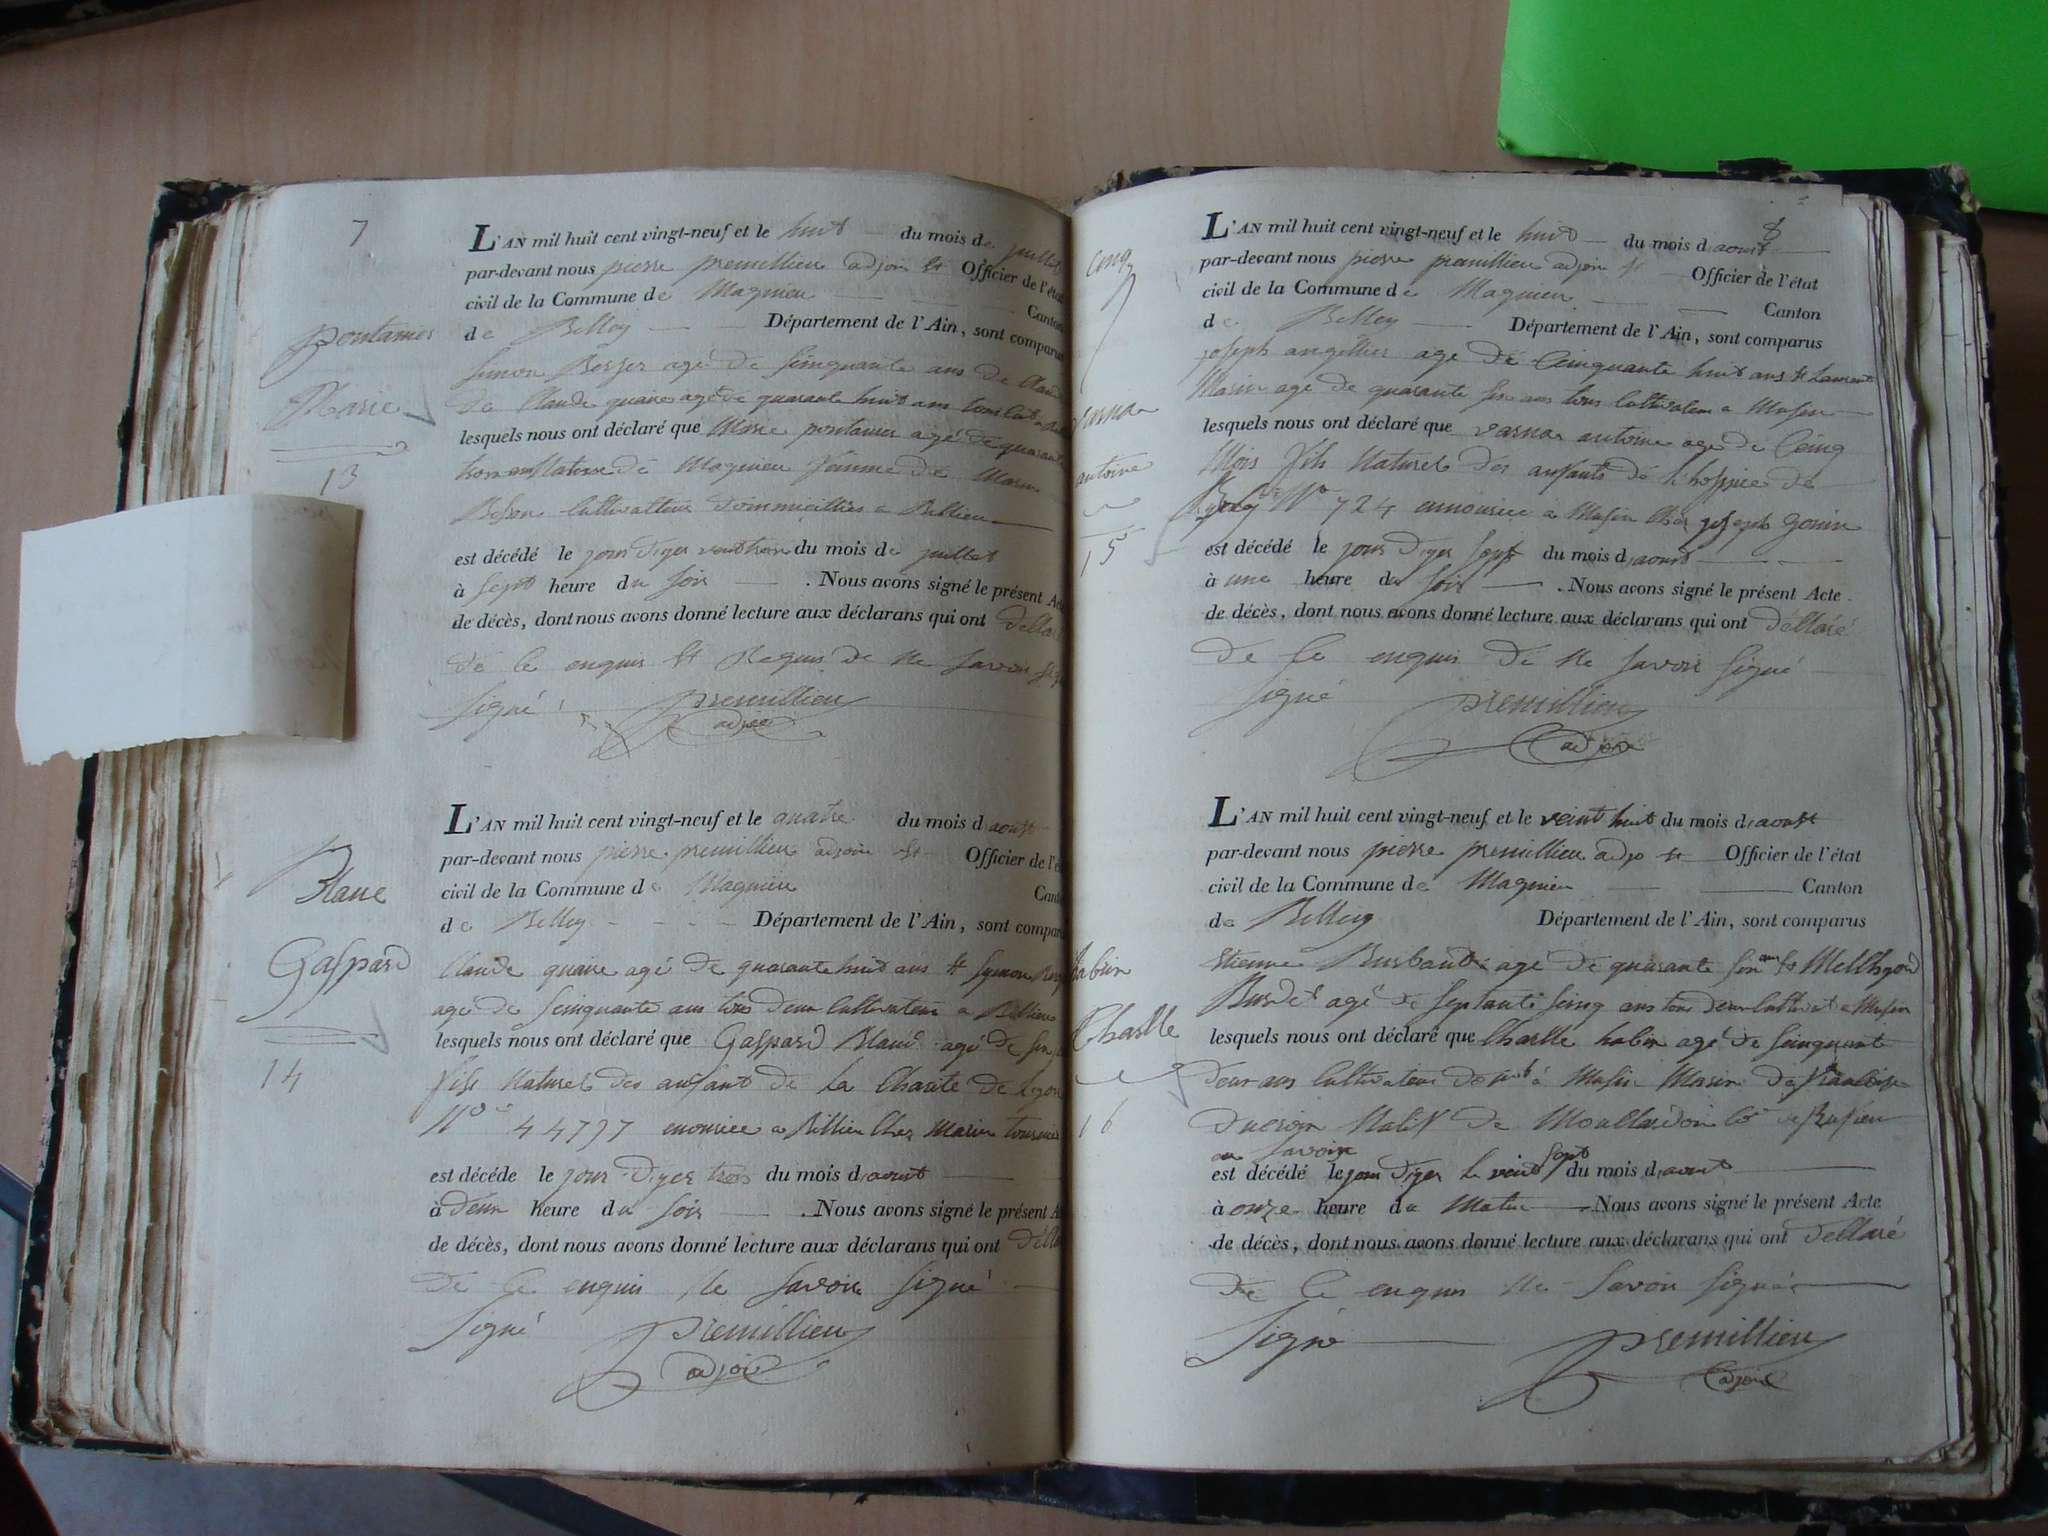 7
L'AN mil huit cent vingt-neuf et le huit du mois de juillet
par-devant nous pierre premillieu adjoin et Officier de l'état
civil de la Commune de Magnieu Canton
de Belley Département de l'Ain, sont comparus
agé de seinquante ans
Claude quaire agé de quarante huit ans
lesquels nous ont déclaré que Marie pontanier agé de quarante
de Magnieu femme de Marin
domicilliés a Billieu
est décédé le jour dÿer du mois de juillet
à sept heure du soir . Nous avons signé le présent Acte
de décès, dont nous avons donné lecture aux déclarans qui ont
de ce enquis et Requis de ne savoir
signé premillieu
adjoin
pontanier
Marie
13
L'AN mil huit cent vingt-neuf et le quatre du mois d aoust
par-devant nous pierre premillieu adjoin et Officier de l'é
civil de la Commune de Magnieu Cant
de Belley Département de l'Ain, sont compar
Claude quaire agé de quarante huit ans et Symon
agé de seinquante ans tous deux cultivateur a Billieu
lesquels nous ont déclaré que Gaspard Blanc agé de
fils naturel des anfant de la Charité de Lyon
N° 44797 a Billieu Chez Marin
est décédé le jour dÿer trois du mois d aoust
à deux heure du soir . Nous avons signé le présent A
de décès, dont nous avons donné lecture aux déclarans qui ont
de ce enquis ne savoir signé
signé premillieu
adjoin
Blanc
Gaspard
14
8
L'AN mil huit cent vingt-neuf et le huit du mois d aoust
par-devant nous pierre premillieu adjoin et Officier de l'état
civil de la Commune de Magnieu Canton
de Belley Département de l'Ain, sont comparus
joseph angellier agé de Ceinquante huit ans et Laurent
Marin agé de quarante six ans tous cultivateur a Musin
lesquels nous ont déclaré que varnas antoine agé de Ceinq
Mois fils Naturel des anfants de l'hospice de
N° 724 a Musin Chez joseph gonin
est décédé le jour dÿer sept du mois d aoust
à une heure du soir . Nous avons signé le présent Acte
de décès, dont nous avons donné lecture aux déclarans qui ont déllaré
de ce enquis de ne savoir signé
signé premillieu
adjoin
antoine
15
L'AN mil huit cent vingt-neuf et le veint huit du mois d aoust
par-devant nous pierre premillieu adjo et Officier de l'état
civil de la Commune de Magnieu Canton
de Belley Département de l'Ain, sont comparus
Etienne agé de quarante
agé de septante seinq ans tous deux a Musin
lesquels nous ont déclaré que Charlle habin agé de seinquant
deux ans Cultivateur a Musin
Natif de
en savoix
est décédé le jour dÿer le veint sept du mois d aoust
à onze heure du Matin . Nous avons signé le présent Acte
de décès, dont nous avons donné lecture aux déclarans qui ont déllaré
de ce enquis ne savoir signé
signé premillieu
adjoin
habin
Charlle
16